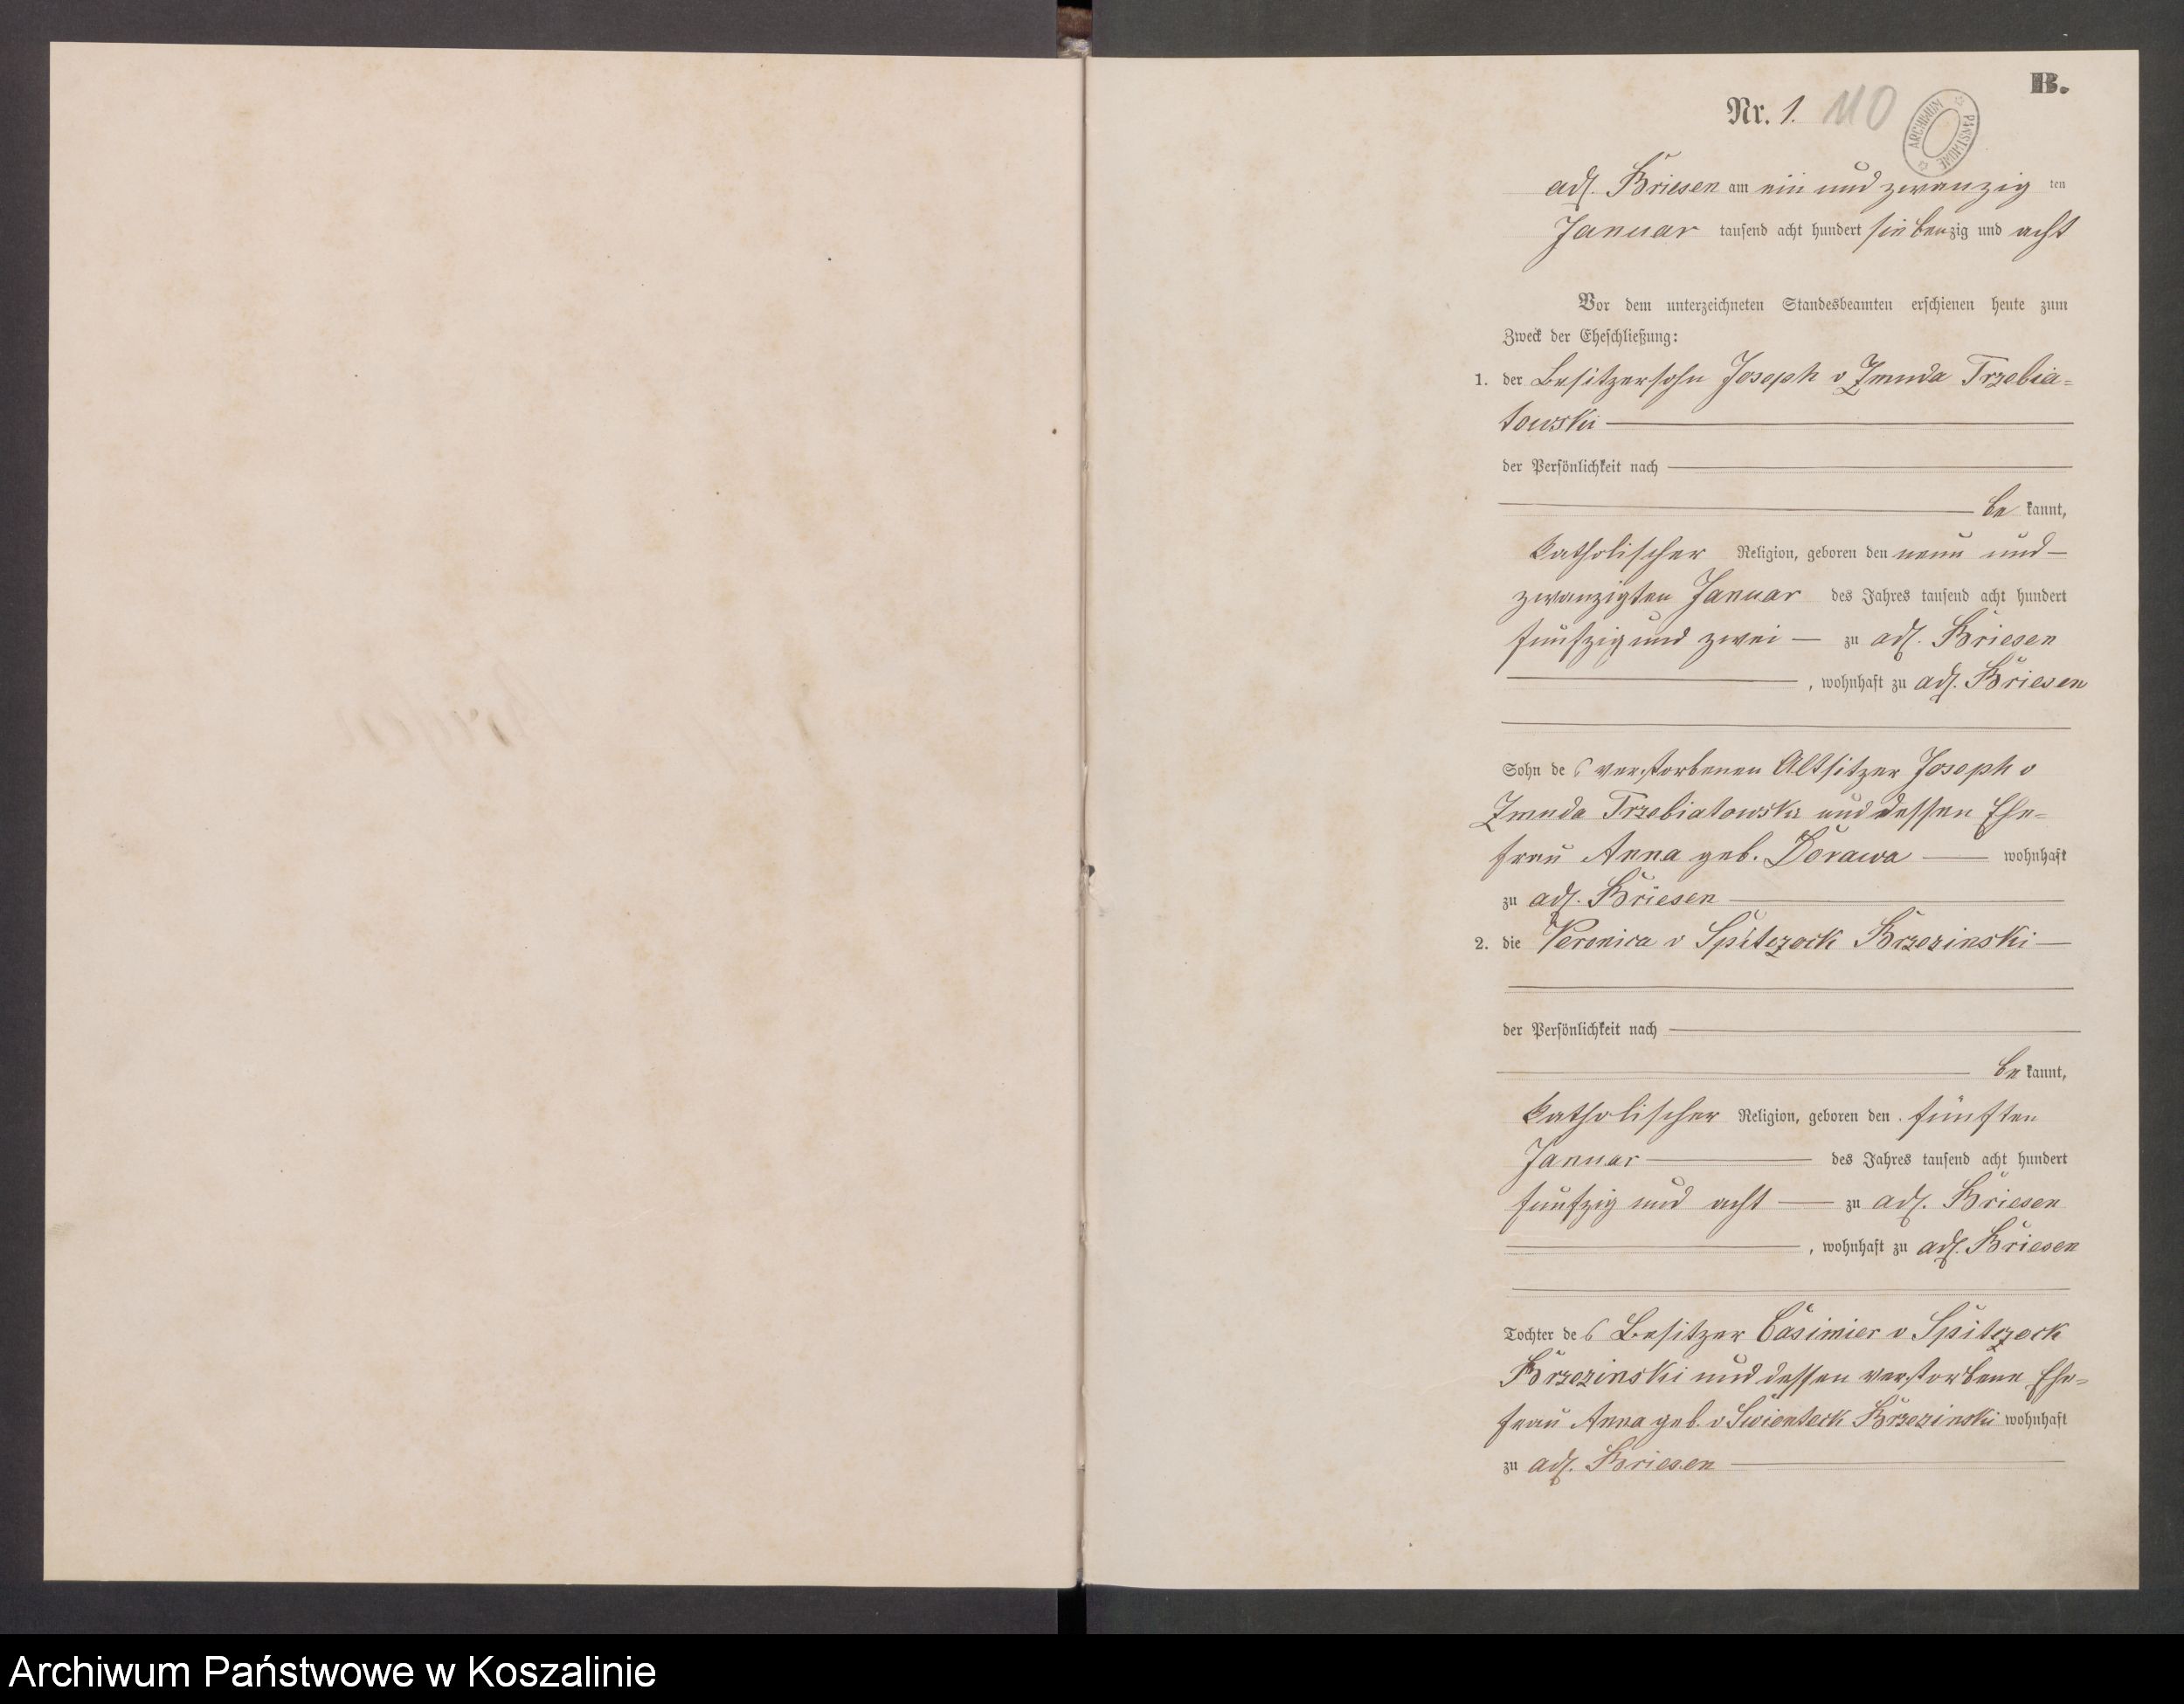 B.
Nr. 1. 110
ARCHIWUM PAŃSTWOWE
adl. Briesen am ein und zwanzig ten
Januar tausend acht hundert siebenzig und acht
Vor dem unterzeichneten Standesbeamten erschienen heute zum
Zweck der Eheschließung:
1. der Besitzersohn Joseph v Zmuda Trzebia=
towski
der Persönlichkeit nach
be kannt,
katholischer Religion, geboren den neun und
zwanzigten Januar des Jahres tausend acht hundert
fünfzig und zwei zu adl. Briesen
, wohnhaft zu adl. Briesen
Sohn des verstorbenen Altsitzer Joseph v
Zmuda Trzebiatowski und dessen Ehe=
frau Anna geb. Dorawa wohnhaft
zu adl. Briesen
2. die Veronica v Spiczock Brzezinski
der Persönlichkeit nach
be kannt,
katholischer Religion, geboren den fünften
Januar des Jahres tausend acht hundert
fünfzig und acht zu adl. Briesen
, wohnhaft zu adl. Briesen
Tochter des Besitzer Casimier v Spiczock
Brzezinski und dessen verstorbene Ehe=
frau Anna geb. v Swienteck Brzezinski wohnhaft
zu adl. Briesen
Archiwum Państwowe w Koszalinie